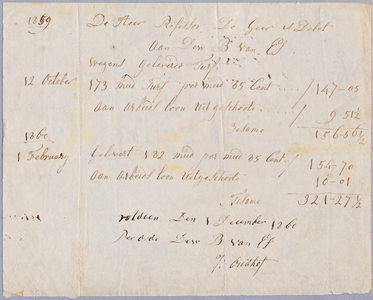 1859 De Heer Ridder De Geer is Debet
Aan Dew B van Es
wegens geleverde Turf
12 October 173 mud Turf per mud 85 Cent / 147-05
aan arbeid loon uitgeschoote / 9 51½
Zadamo 156-56½
1860
1 February Gelevert 182 mud per mud 85 Cent / 154-70
aan arbeid loon uitgeschoote 10-01
321-27½
voldaan Den 1 December 1860
Per orde Dew B van Es